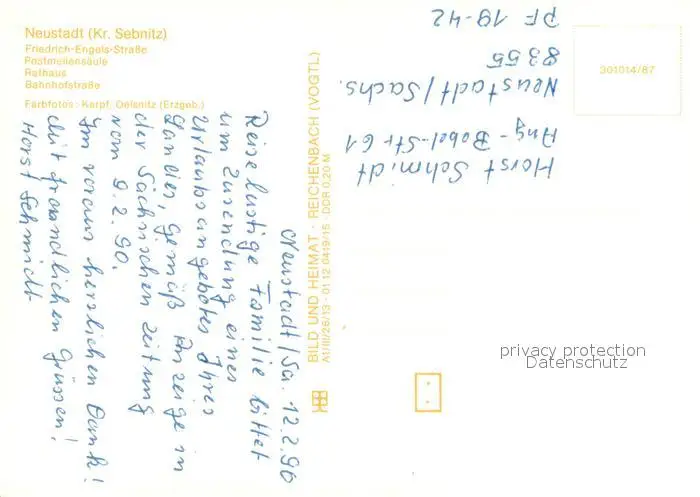 Neustadt (Kr. Sebnitz)
Friedrich-Engels-Straße
Postmeilensäule
Rathaus
Bahnhofstraße
Farbfotos: Karpf, Oelsnitz (Erzgeb.)
Neustadt/Sa. 12.2.90
Reiselustige Familie bittet
um Zusendung eines
Urlaubsangebotes Ihres
Landes, gemäß Anzeige in
der Sächsischen Zeitung
vom 9.2.90.
Im voraus herzlichen Dank!
Mit freundlichen Grüssen!
Horst Schmidt
BILD UND HEIMAT · REICHENBACH (VOGTL)
A1/III/26/13 · 01 12 0419/15 · DDR 0,20 M
Horst Schmidt
Aug-Bebel-Str 61
Neustadt/Sachs.
8355
PF 19-42
301014/87
privacy protection
Datenschutz